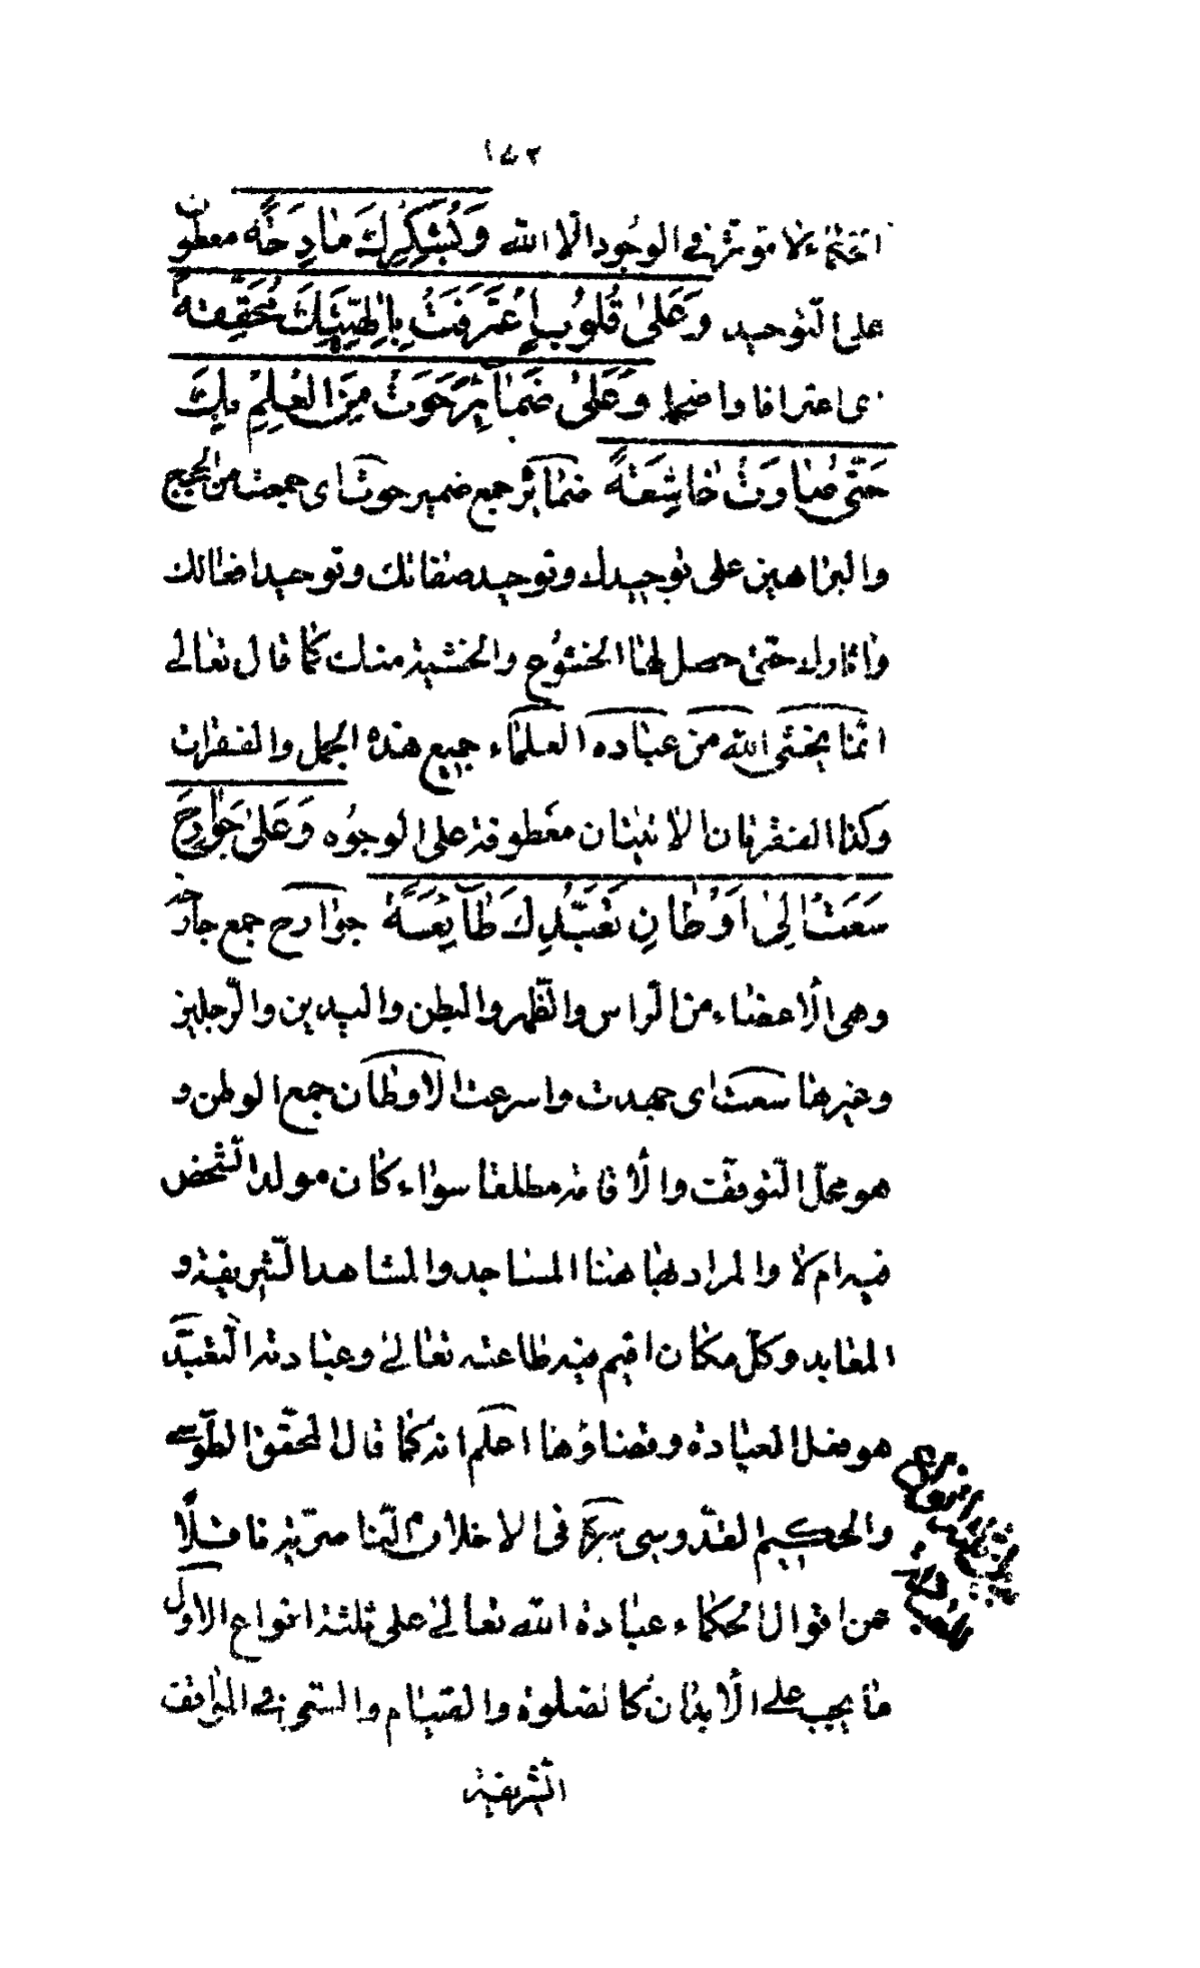 ١٥٢
الحكماء لا مؤثر في الوجود الا الله وَبِشُكْرِكَ مَادِحَةً معطوف
على التوحيد وَعَلىٰ قُلُوبٍ اِعْتَرَفَتْ بِاِلٰهِيَّتِكَ مُحَقِّقَةً
اى اعترافا واضحا وَعَلىٰ ضَمٰائِرَ حَوَتْ مِنَ الْعِلْمِ بِكَ
حَتّىٰ صٰارَتْ خٰاشِعَةً ضمائر جمع ضمير حوت اى جمعت من الحجج
والبراهين على توحيدك وتوحيد صفاتك وتوحيد افعالك
واثارك حتى حصل لها الخشوع والخشية منك كما قال تعالى
انما يخشى الله من عباده العلماء جميع هذه الجمل والفقرات
وكذا الفقرتان الاتيتان معطوفة على الوجوه وَعَلىٰ جَوٰارِحَ
سَعَتْ اِلىٰ اَوْطٰانِ تَعَبُّدِكَ طٰائِعَةً جوارح جمع جارحة
وهى الاعضاء من الرأس والظهر والبطن واليدين والرجلين
وغيرها سعت اى جهدت واسرعت الاوطان جمع الوطن و
هو محل التوقف والاقامة مطلقا سواء كان مولد الشخص
فيه ام لا والمراد بها هنا المساجد والمشاهد الشريفة و
المعابد وكل مكان اقيم فيه طاعته تعالى وعبادته التعبد
هو فعل العبادة وقصارها اعلم انه كما قال المحقق الطوسى
والحكيم القدوسى سره فى الاخلاق الناصرية ناقلا
من اقوال الحكماء عبادة الله تعالى على ثلثة انواع الاول
ما يجب على الابدان كالصلوة والصيام والسعى فى المواقف
الشريفة